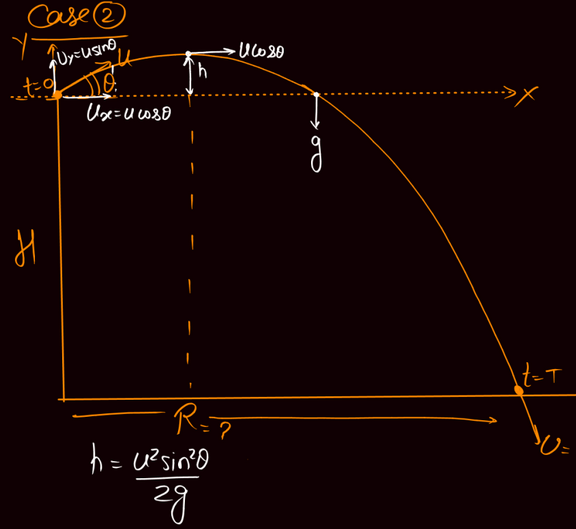 Case ②
Y
Uy=usinθ
u
ucosθ
t=0
θ
h
x
Ux=ucosθ
g
H
t=T
R=?
U=
h = u²sin²θ
2g